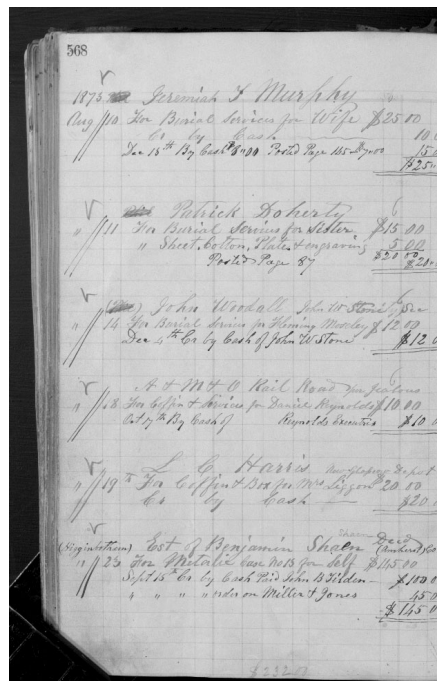 568
1873 Jeremiah F Murphy
Aug 10 For Burial Services for Wife $25 00
Cr by Cash 10
Dec 18th By Cash Posted Page 165 15 0
$25
Patrick Doherty
" 11 For Burial Services for Sister $15 00
" Sheet, Cotton, Plate & engraving 5 00
Posted Page 87 $20 00
$20
John Woodall John W Stone
" 14 For Burial Services for Fleming Moseley $12 00
Dec 4th Cr by Cash of John W Stone $12 0
A & M & O Rail Road
" 18 For Coffin & Services for Daniel Reynolds $10 00
Oct 7th By Cash of Reynolds Executrix $10 0
L C Harris
" 19th For Coffin & Box for Mrs Liggon 20 00
Cr by Cash $20
Est of Benjamin Shaen Decd
" 23 For Metalic Case No 13 for Self $145 00 (Amherst) Co
Sept 15th Cr by Cash Paid John B Tilden $100 0
" " " " order on Miller & Jones 45 0
$145 0